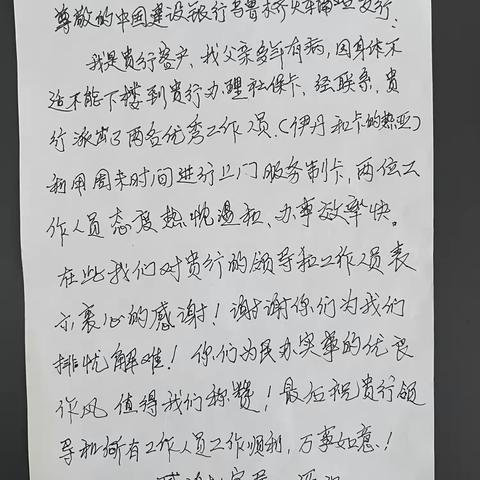 尊敬的中国建设银行乌鲁木齐火车南站支行:
我是贵行客户，我父亲多年有病，因身体不
适不能下楼到贵行办理社保卡，经联系，贵
行派出了两名优秀工作人员。(伊丹和卡的热亚)
利用周末时间进行上门服务制卡，两位工
作人员态度热忱温和、办事效率快。
在此我们对贵行的领导和工作人员表
示衷心的感谢！谢谢你们为我们
排忧解难！你们为民办实事的优良
作风值得我们称赞！最后祝贵行领
导和所有工作人员工作顺利，万事如意！